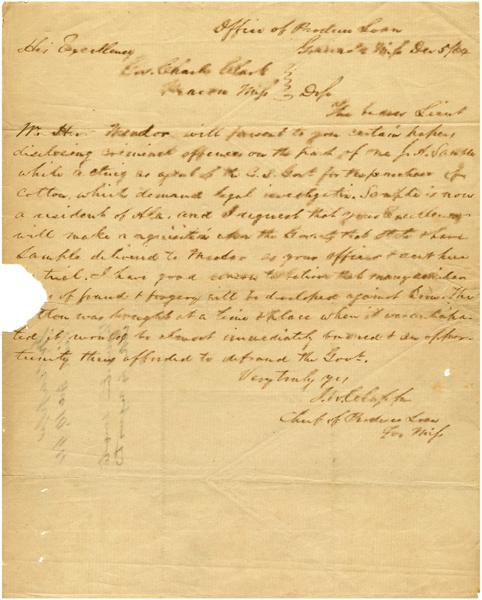 Office of Produce Loan
Grenada Miss Dec 5/64
His Excellency
Gov. Charles Clark
Macon Miss
The Lieut
Wm. Meador will present to you certain papers
disclosing criminal offences on the part of one J. A. Sample
while acting as agent of the C. S. Govt. for the purchase of
cotton, which demand legal investigation. Sample is now
a resident of Ala, and I request that your Excellency
will make a requisition upon the Gov. of that State & have
Sample delivered to Meador as your officer & sent here
trial. I have good reason to believe that many
of fraud & forgery will be developed against him. The
was bought at a time & place when it was
it would be almost immediately burned & an oppor-
tunity thus afforded to defraud the Govt.
Very truly yrs
J. W. Clapp
Chief of Produce Loan
for Miss